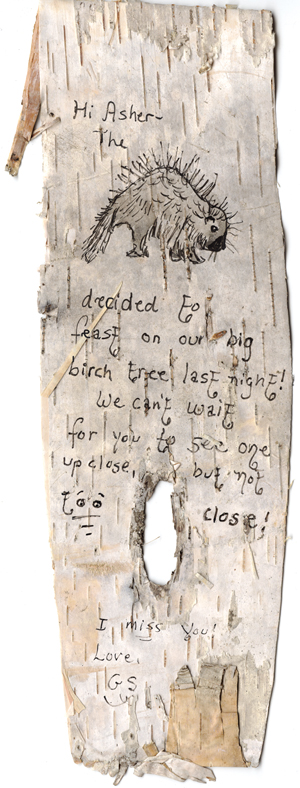 Hi Asher-
The
decided to
feast on our big
birch tree last night!
We can't wait
for you to see one
up close, but not
too close!
I miss you!
Love,
GS